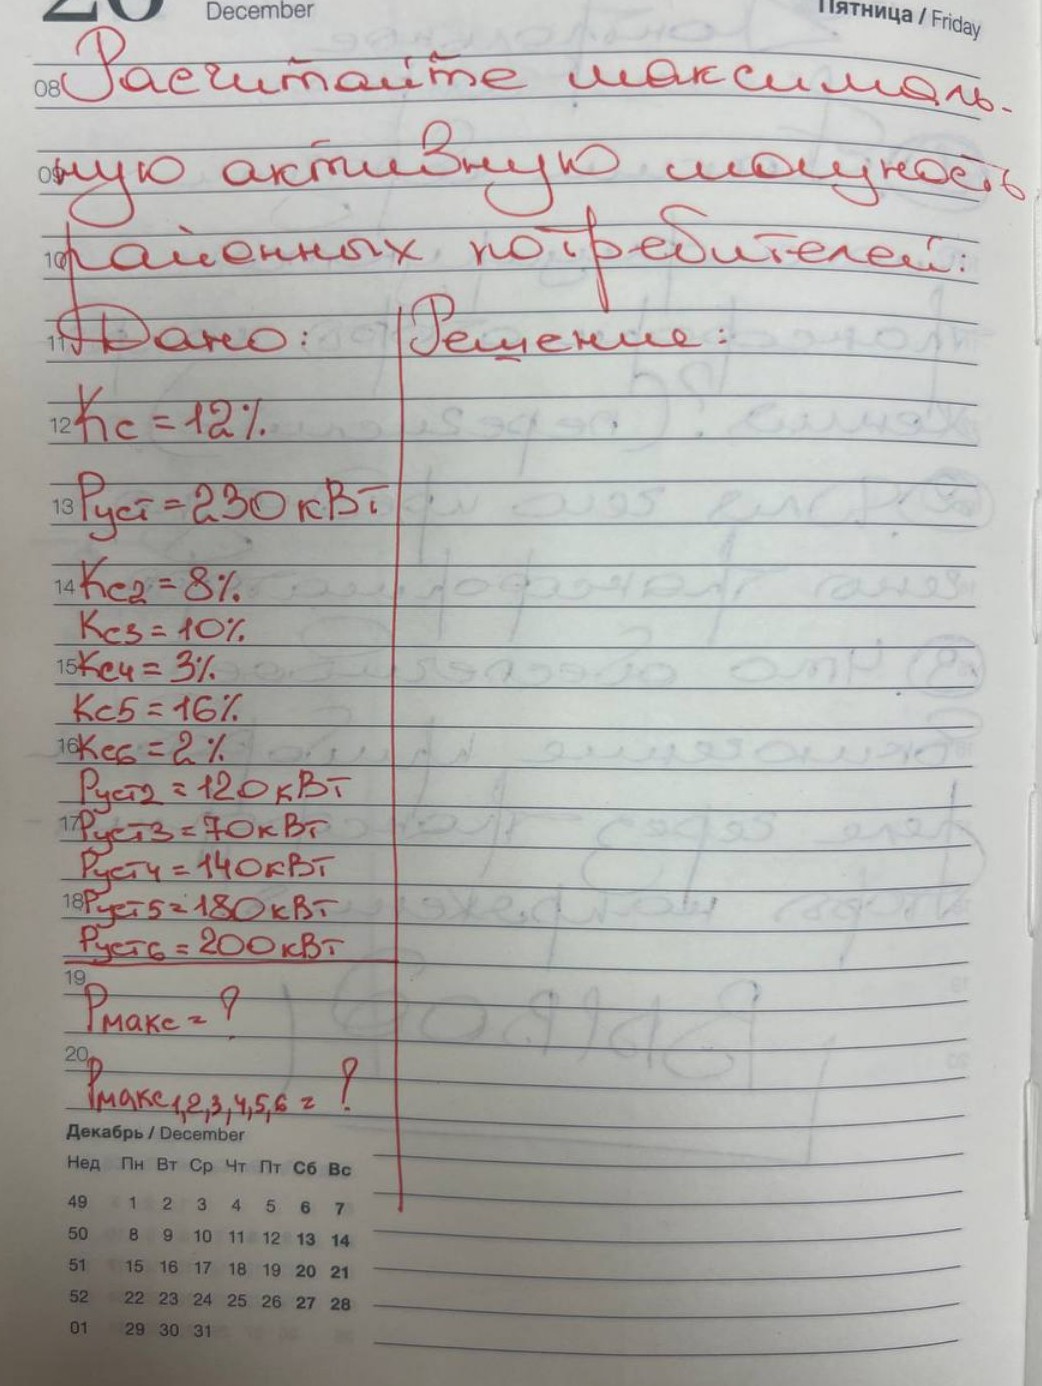 December
Пятница / Friday
08 Расчитайте максималь-
09 ную активную мощность
10 районных потребителей:
11 Дано: Решение:
12 Kc = 12%
13 Руст = 230 кВт
14 Kc2 = 8%
Kc3 = 10%
15 Kc4 = 3%
Kc5 = 16%
16 Kc6 = 2%
Руст2 = 120 кВт
17 Руст3 = 70 кВт
Руст4 = 140 кВт
18 Руст5 = 180 кВт
Руст6 = 200 кВт
19
Рмакс = ?
20
Рмакс1,2,3,4,5,6 = ?
Декабрь / December
Нед Пн Вт Ср Чт Пт Сб Вс
49 1 2 3 4 5 6 7
50 8 9 10 11 12 13 14
51 15 16 17 18 19 20 21
52 22 23 24 25 26 27 28
01 29 30 31